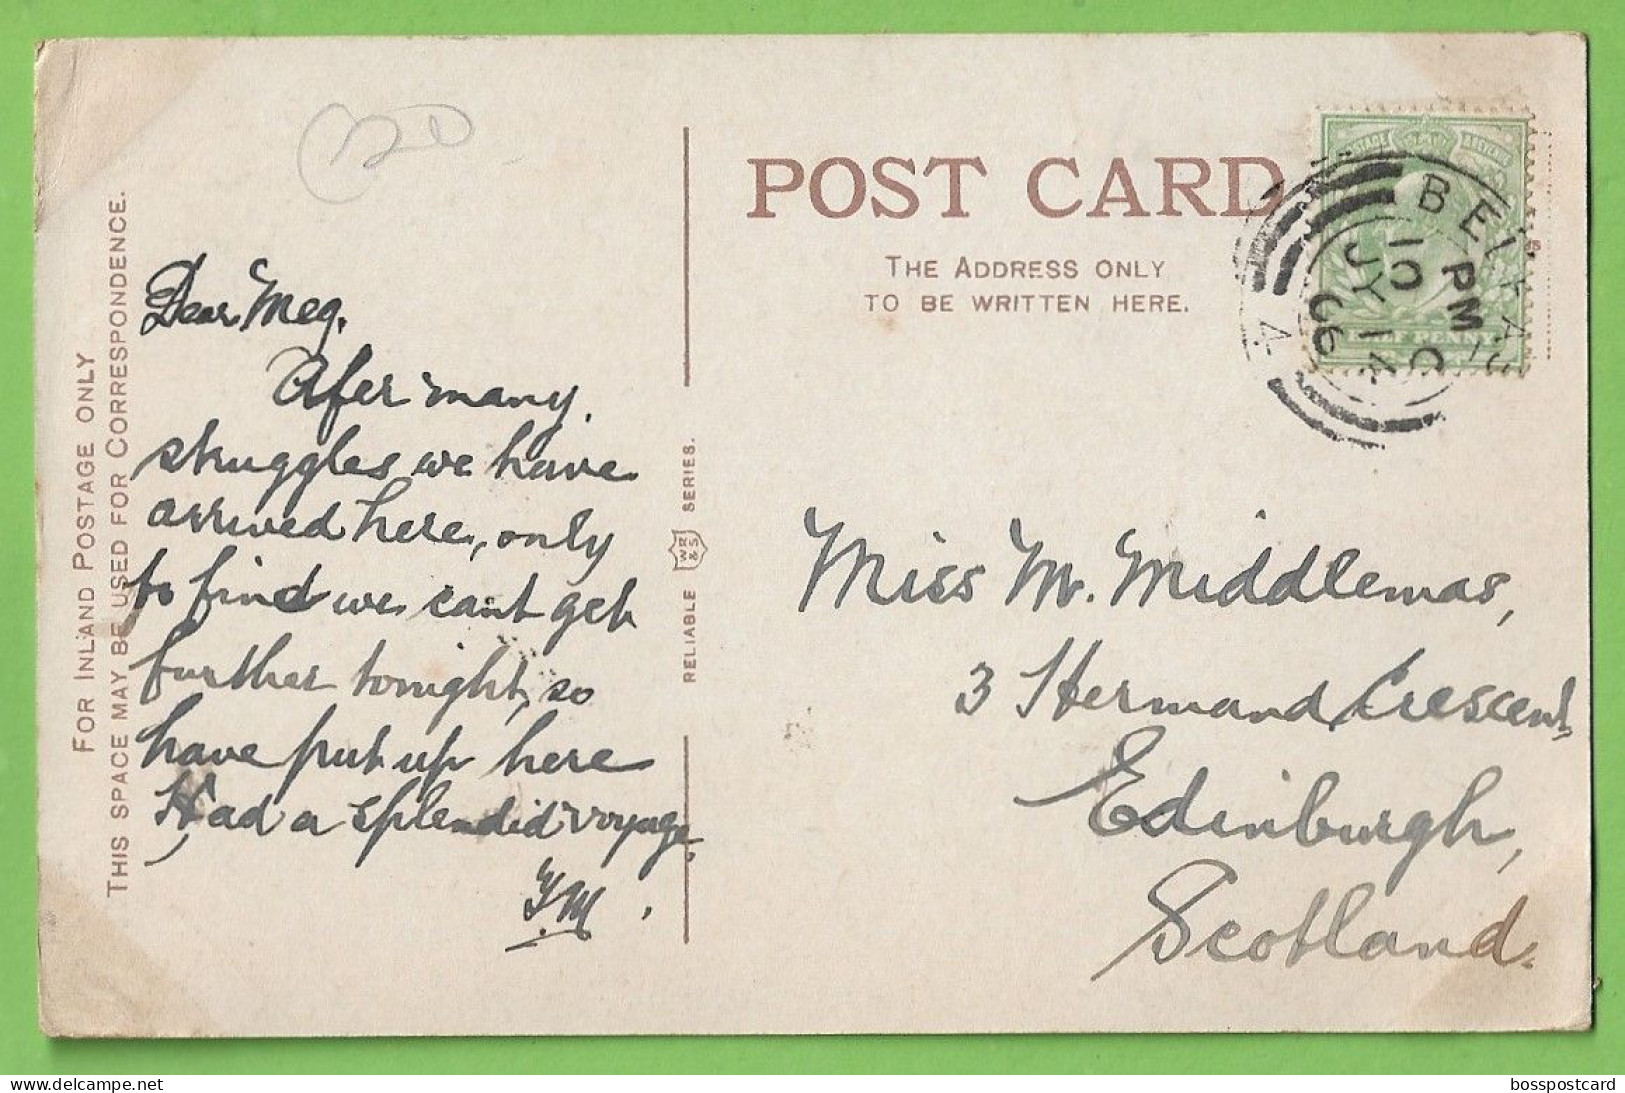 FOR INLAND POSTAGE ONLY
THIS SPACE MAY BE USED FOR CORRESPONDENCE.
Dear Meg.
Afer many
struggles we have
arrived here, only
to find we cant get
further tonight, so
have put up here
Had a splendid voyage.
RELIABLE WR&S SERIES.
POST CARD
THE ADDRESS ONLY
TO BE WRITTEN HERE.
POSTAGE REVENUE
HALF PENNY
BELFAST
10 PM
JY 10
06
4
Miss M. Middlemas,
3 Hermand Crescent,
Edinburgh,
Scotland.
bosspostcard